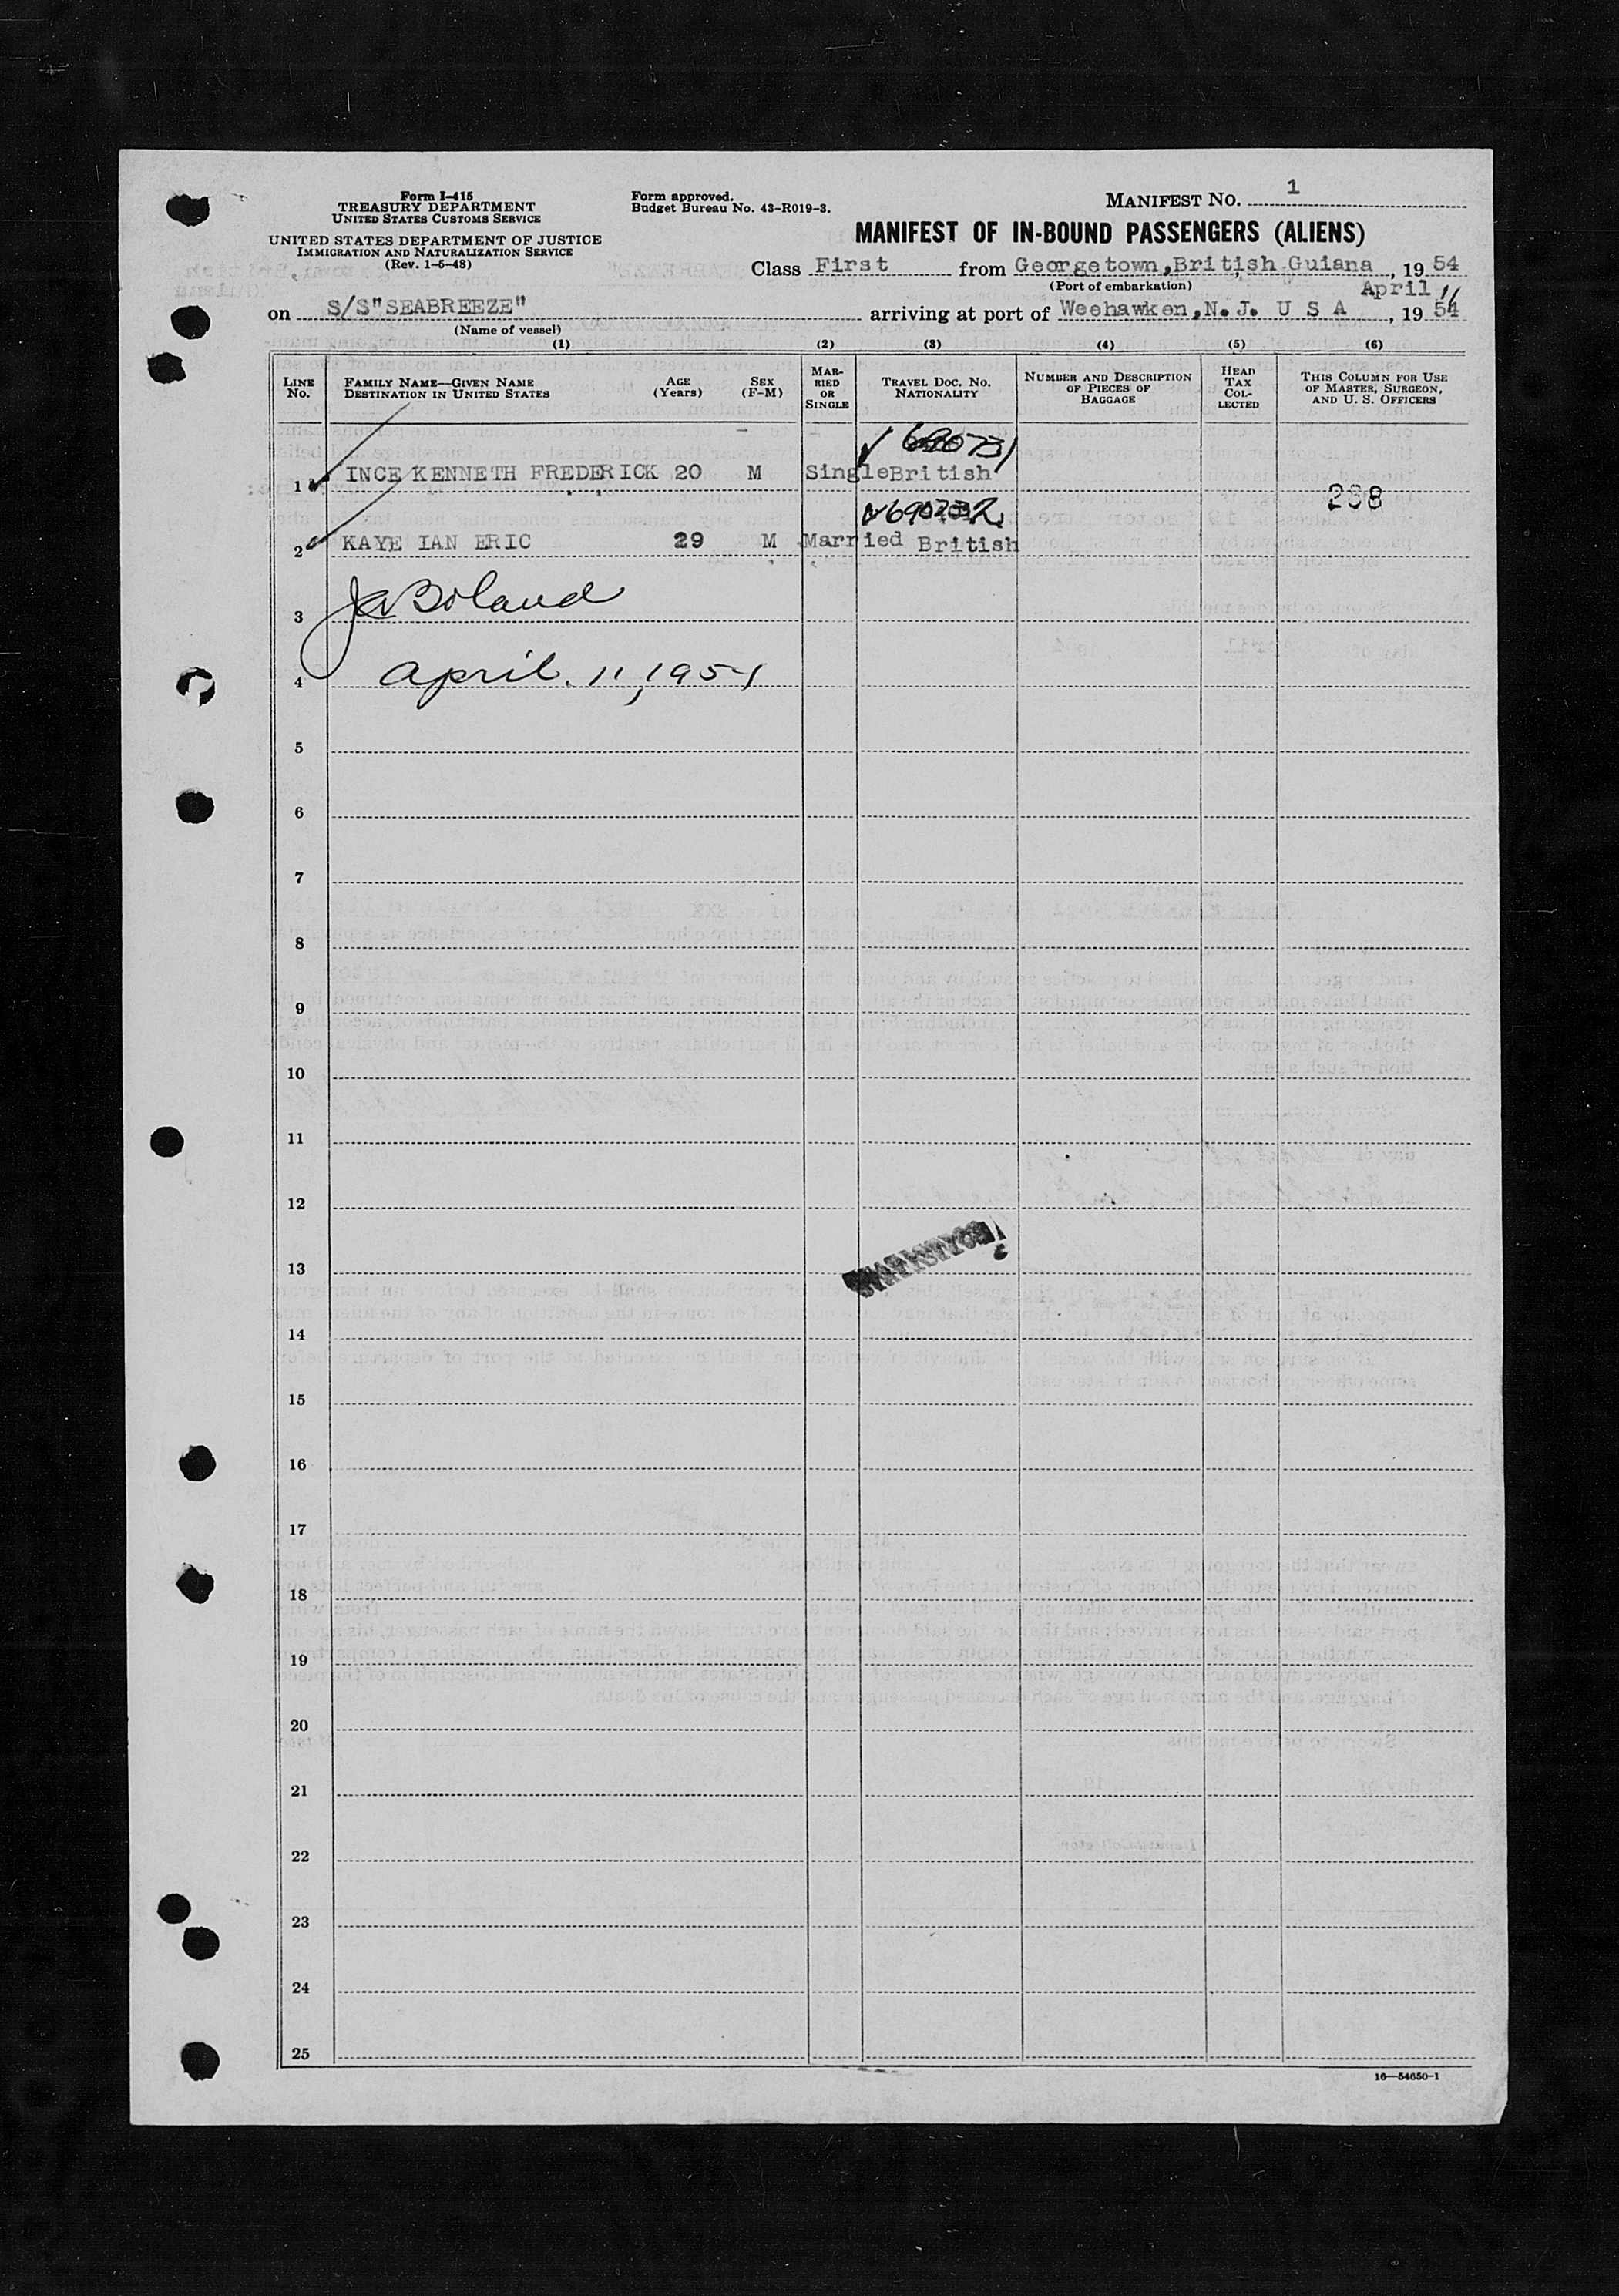 Form I-415
TREASURY DEPARTMENT
UNITED STATES CUSTOMS SERVICE
UNITED STATES DEPARTMENT OF JUSTICE
IMMIGRATION AND NATURALIZATION SERVICE
(Rev. 1-5-48)
Form approved.
Budget Bureau No. 43-R019-3.
MANIFEST NO. 1
MANIFEST OF IN-BOUND PASSENGERS (ALIENS)
Class First from Georgetown,British Guiana, 1954
(Port of embarkation)
April 11
on S/S"SEABREEZE" arriving at port of Weehawken,N.J. U S A, 1954
(Name of vessel)
(1) (2) (3) (4) (5) (6)
LINE No.
FAMILY NAME—GIVEN NAME
DESTINATION IN UNITED STATES
AGE (Years)
SEX (F-M)
MARRIED OR SINGLE
TRAVEL DOC. NO. NATIONALITY
NUMBER AND DESCRIPTION OF PIECES OF BAGGAGE
HEAD TAX COLLECTED
THIS COLUMN FOR USE OF MASTER, SURGEON, AND U. S. OFFICERS
690731
1 INCE KENNETH FREDERICK 20 M Single British
288
2 KAYE IAN ERIC 29 M Married British
3 JaBoland
4 April. 11, 1954
5
6
7
8
9
10
11
12
13
14
15
16
17
18
19
20
21
22
23
24
25
16—54650-1